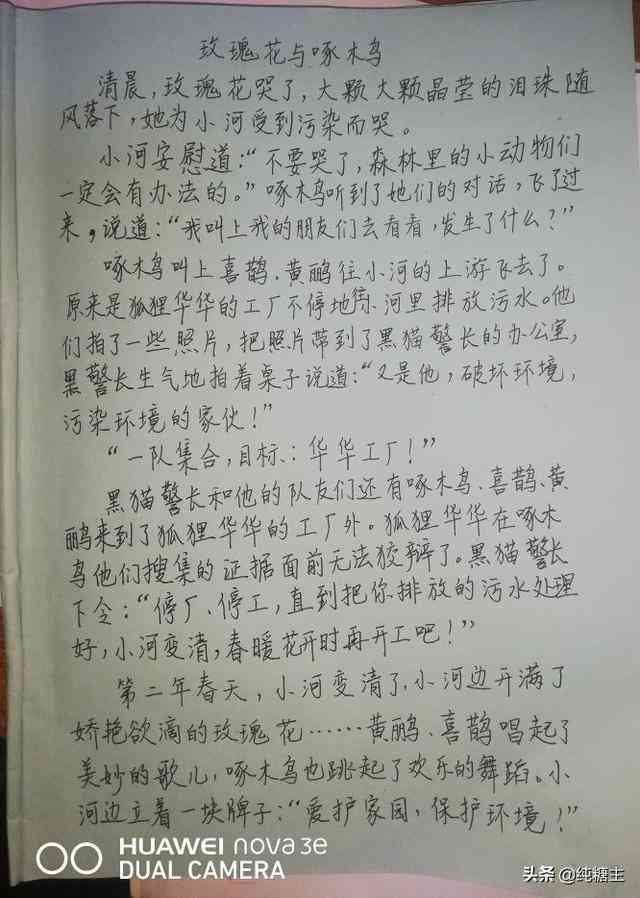 玫瑰花与啄木鸟
清晨，玫瑰花哭了，大颗大颗晶莹的泪珠随
风落下，她为小河受到污染而哭。
小河安慰道：“不要哭了，森林里的小动物们
一定会有办法的。”啄木鸟听到了她们的对话，飞了过
来，说道：“我叫上我的朋友们去看看，发生了什么？”
啄木鸟叫上喜鹊、黄鹂往小河的上游飞去了。
原来是狐狸华华的工厂不停地往小河里排放污水。他
们拍了一些照片，把照片带到了黑猫警长的办公室，
黑警长生气地拍着桌子说道：“又是他，破坏环境，
污染环境的家伙！”
“一队集合，目标：华华工厂！”
黑猫警长和他的队友们还有啄木鸟、喜鹊、黄
鹂来到了狐狸华华的工厂外。狐狸华华在啄木
鸟他们搜集的证据面前无法狡辩了。黑猫警长
下令：“停厂、停工，直到把你排放的污水处理
好，小河变清，春暖花开时再开工吧！”
第二年春天，小河变清了，小河边开满了
娇艳欲滴的玫瑰花……黄鹂、喜鹊唱起了
美妙的歌儿，啄木鸟也跳起了欢乐的舞蹈。小
河边立着一块牌子：“爱护家园，保护环境！”
HUAWEI nova 3e
DUAL CAMERA
头条 @纯糖主